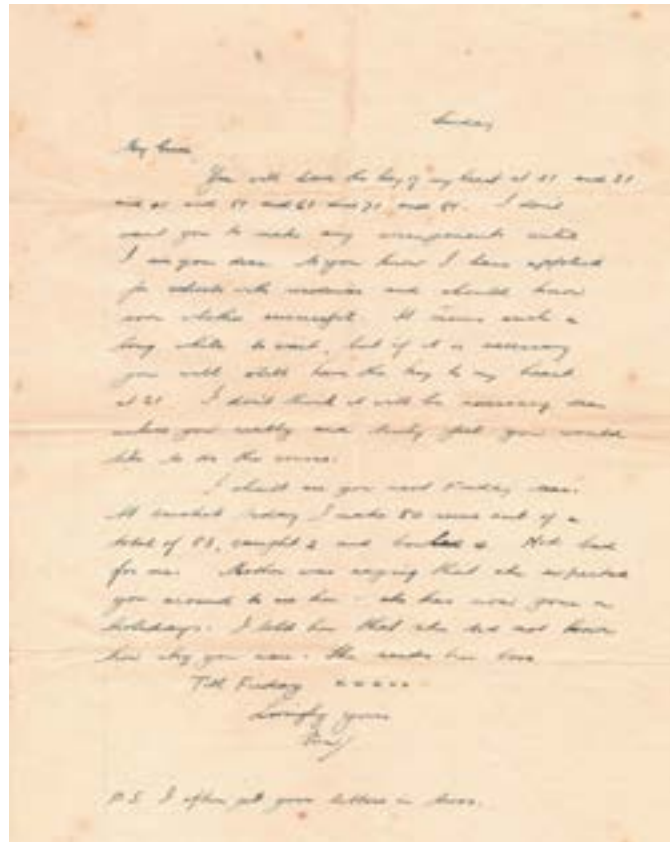 Sunday
My
You will have the key of my heart at 21 and 31
and 41 and 51 and 61 and 71 and 81. I don't
want you to make any arrangements until
I see you dear. As you know I have applied
for and should know
soon whether successful. It seems such a
long while to wait, but if it is necessary
you will still have the key to my heart
at 21 I don't think it will be necessary dear
unless you really and truly feel you would
like to do the course.
I shall see you next Friday dear.
At cricket today I made 50 runs out of a
total of 83, caught 2 and bowled 4. Not bad
for me. Mother was saying that she expected
you around to see her - she has now gone on
holidays. I told her that she did not know
how shy you were. She sends her love
Till Friday x x x x x
Lovingly yours
P.S. I often get your letters in